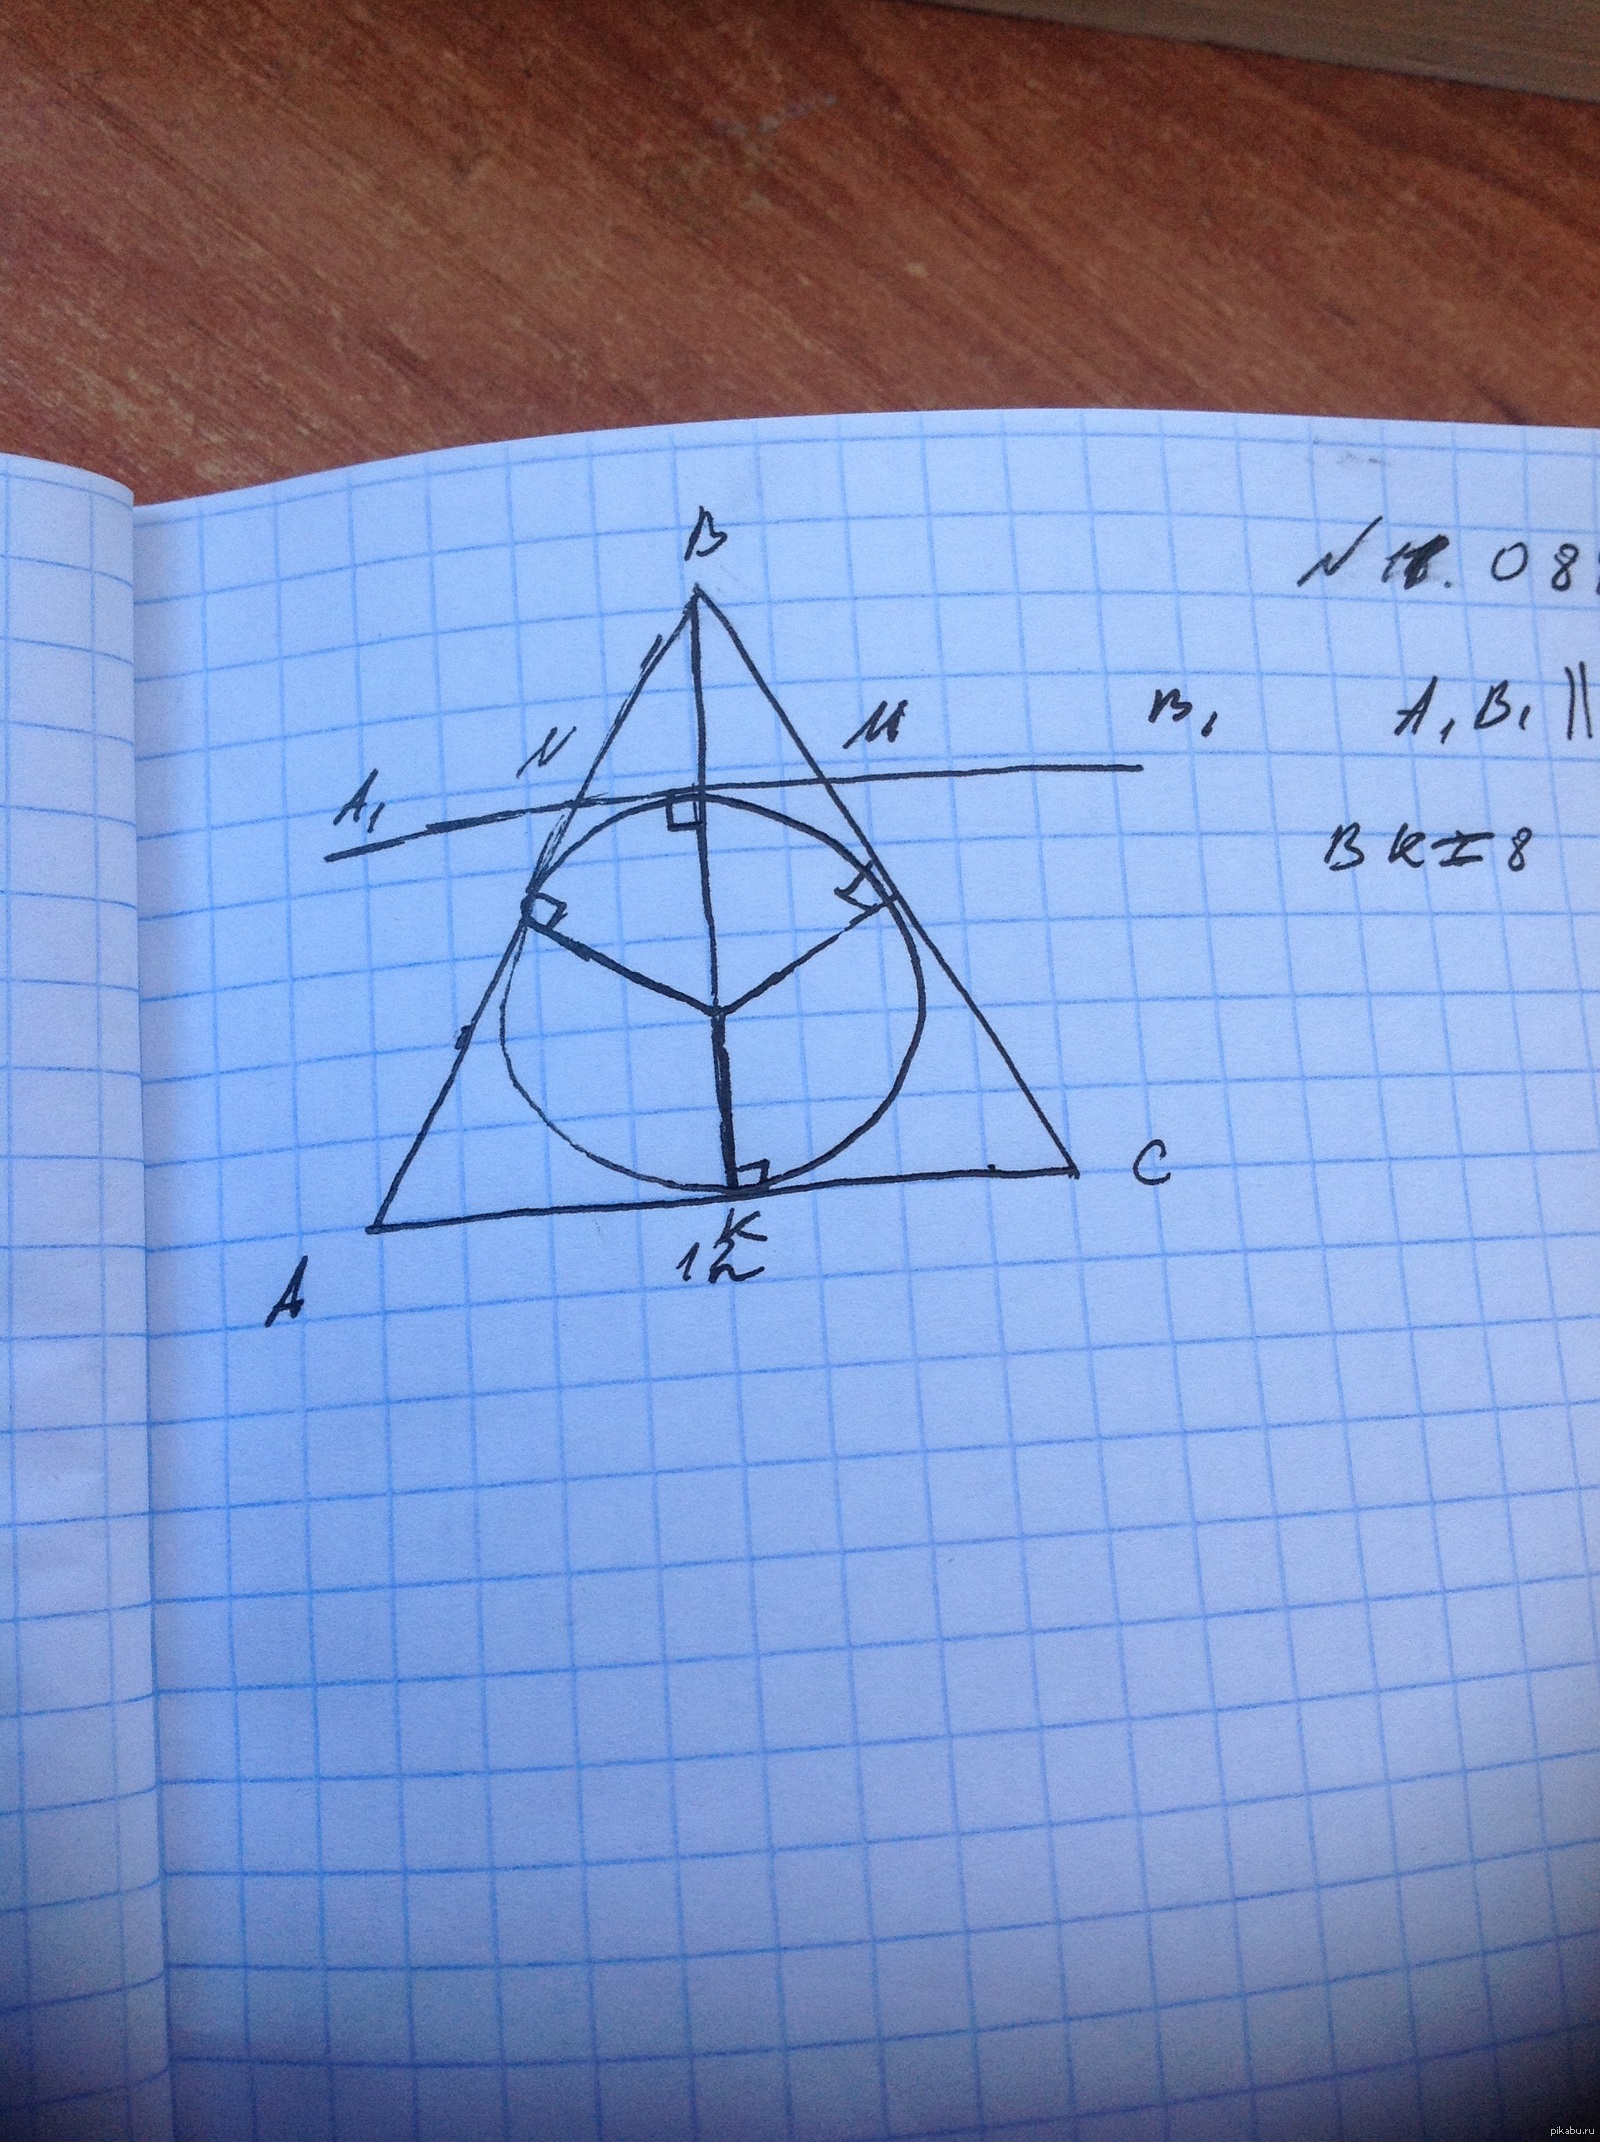 B
N 11. 08
N
M
B₁
A₁B₁ ||
A₁
BK=8
C
K
12
A
pikabu.ru